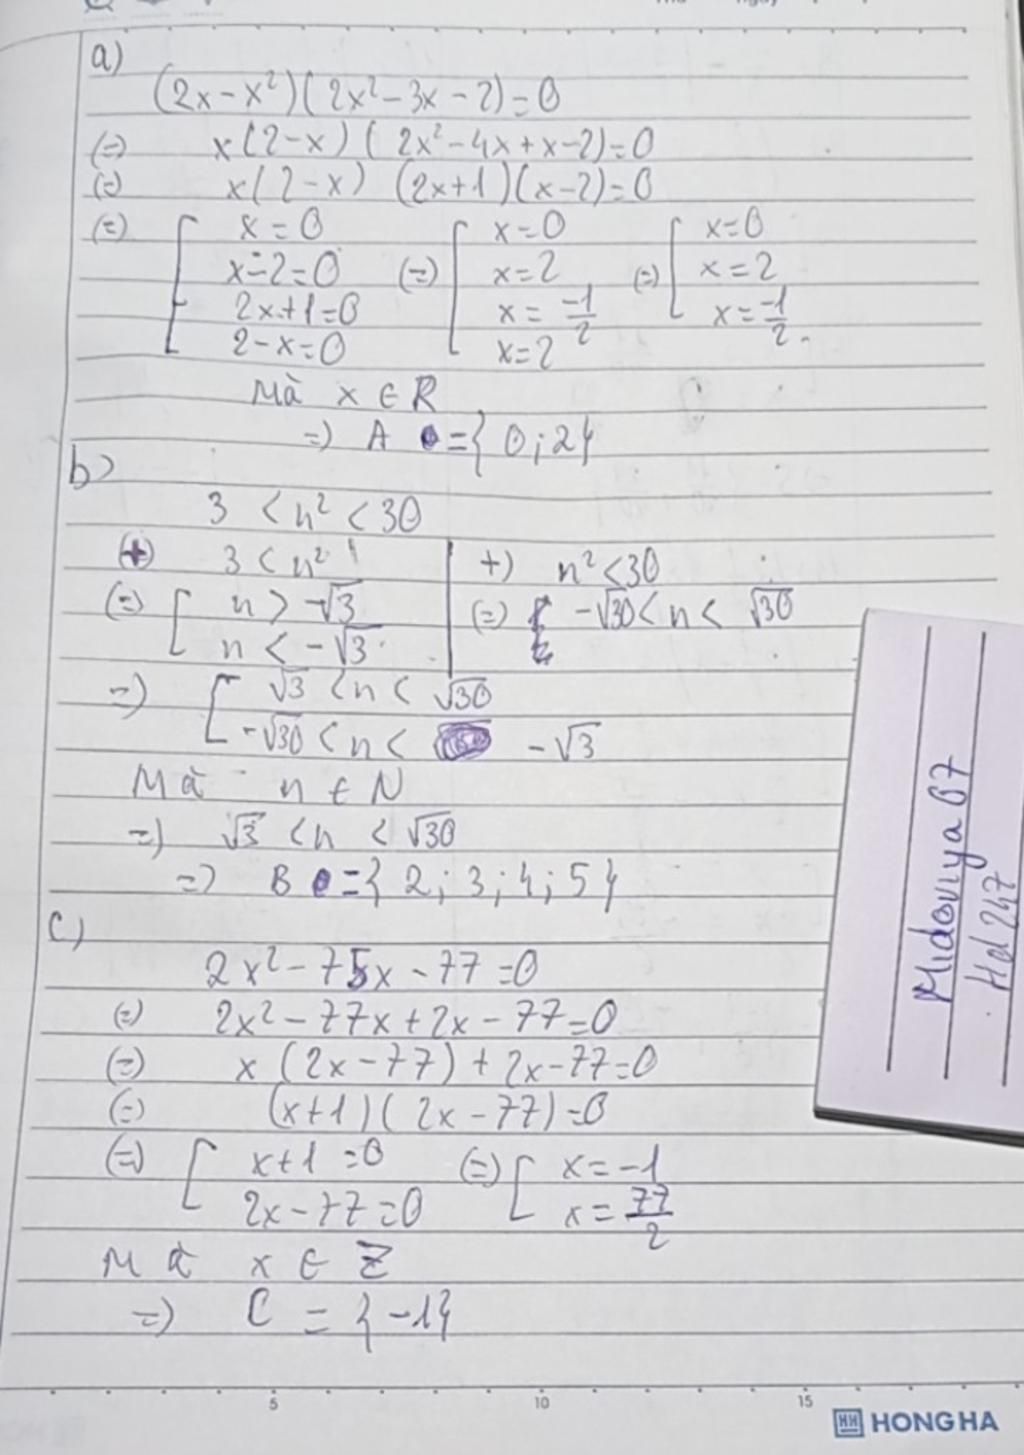 a)
(2x-x²)(2x²-3x-2)=0
(=) x(2-x)(2x²-4x+x-2)=0
(=) x(2-x) (2x+1)(x-2)=0
(=) [ x=0 (=) [ x=0 (=) [ x=0
x-2=0 x=2 x=2
2x+1=0 x=-1/2 x=-1/2.
2-x=0 x=2
Mà x ∈ R
=) A ={0;2}
b)
3 < n² < 30
(+) 3 < n² +) n² < 30
(=) [ n > √3 (=) -√30 < n < √30
n < -√3
=) [ √3 < n < √30
-√30 < n < -√3
Mà n ∈ N
=) √3 < n < √30
=) B ={2;3;4;5}
c)
2x²-75x-77=0
(=) 2x²-77x+2x-77=0
(=) x(2x-77)+2x-77=0
(=) (x+1)(2x-77)=0
(=) [ x+1=0 (=) [ x=-1
2x-77=0 x=77/2
Mà x ∈ Z
=) C = {-1}
Midoviya07
Hd247
5 10 15
HH HONG HA